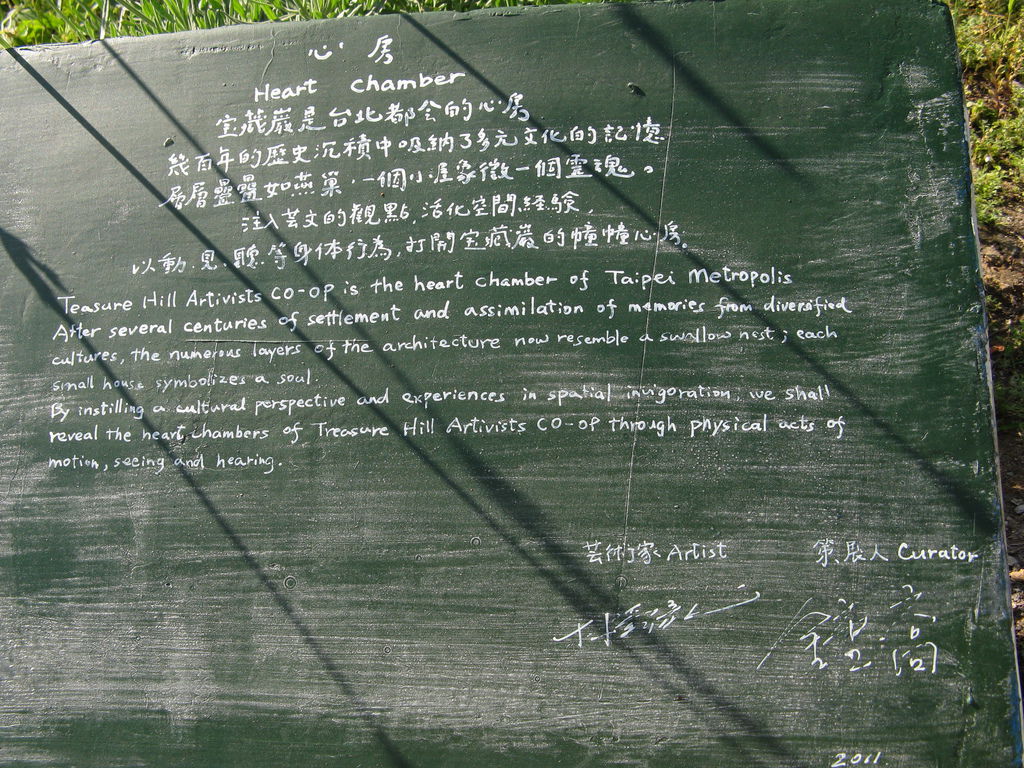 心房
Heart chamber
宝藏巖是台北都会的心房
幾百年的歷史沉積中吸納了多元文化的記憶
層層疊疊如燕巢，一個小屋象徵一個靈魂。
注入芸文的觀點，活化空間經驗，
以動、見、聽等身体行為，打開宝藏巖的幢幢心房。
Teasure Hill Artivists CO-OP is the heart chamber of Taipei Metropolis
After several centuries of settlement and assimilation of memories from diversified
cultures, the numerous layers of the architecture now resemble a swallow nest; each
small house symbolizes a soul.
By instilling a cultural perspective and experiences in spatial invigoration, we shall
reveal the heart chambers of Treasure Hill Artivists CO-OP through physical acts of
motion, seeing and hearing.
芸術家 Artist 策展人 Curator
2011